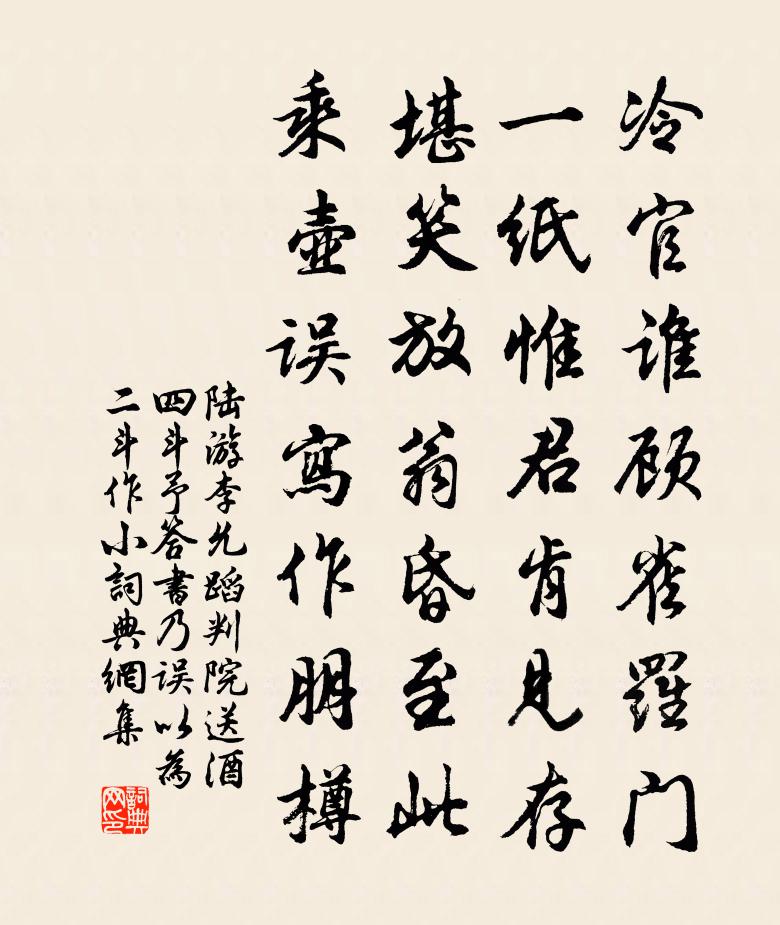 冷官谁顾雀羅门
一纸惟君肯見存
堪笑放翁昏至此
乘壺误寫作朋樽
陆游李允蹈判院送酒
四斗予答書乃误以為
二斗作小詞典網集
詞典
网印